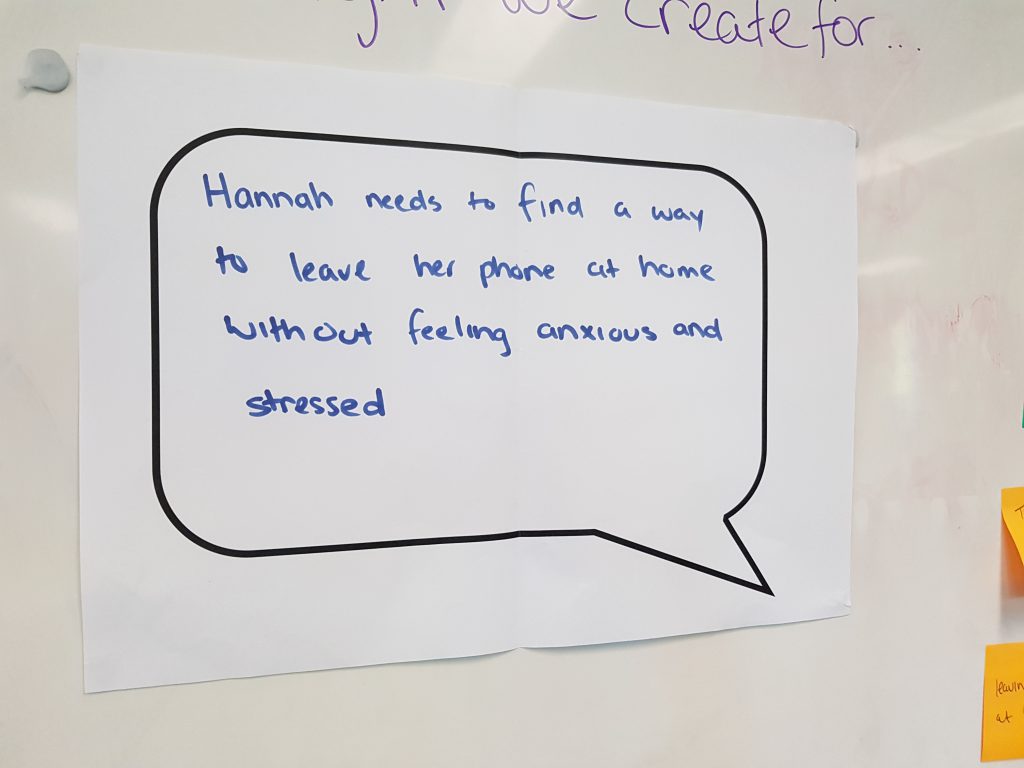 we create for...
Hannah needs to find a way
to leave her phone at home
without feeling anxious and
stressed
at